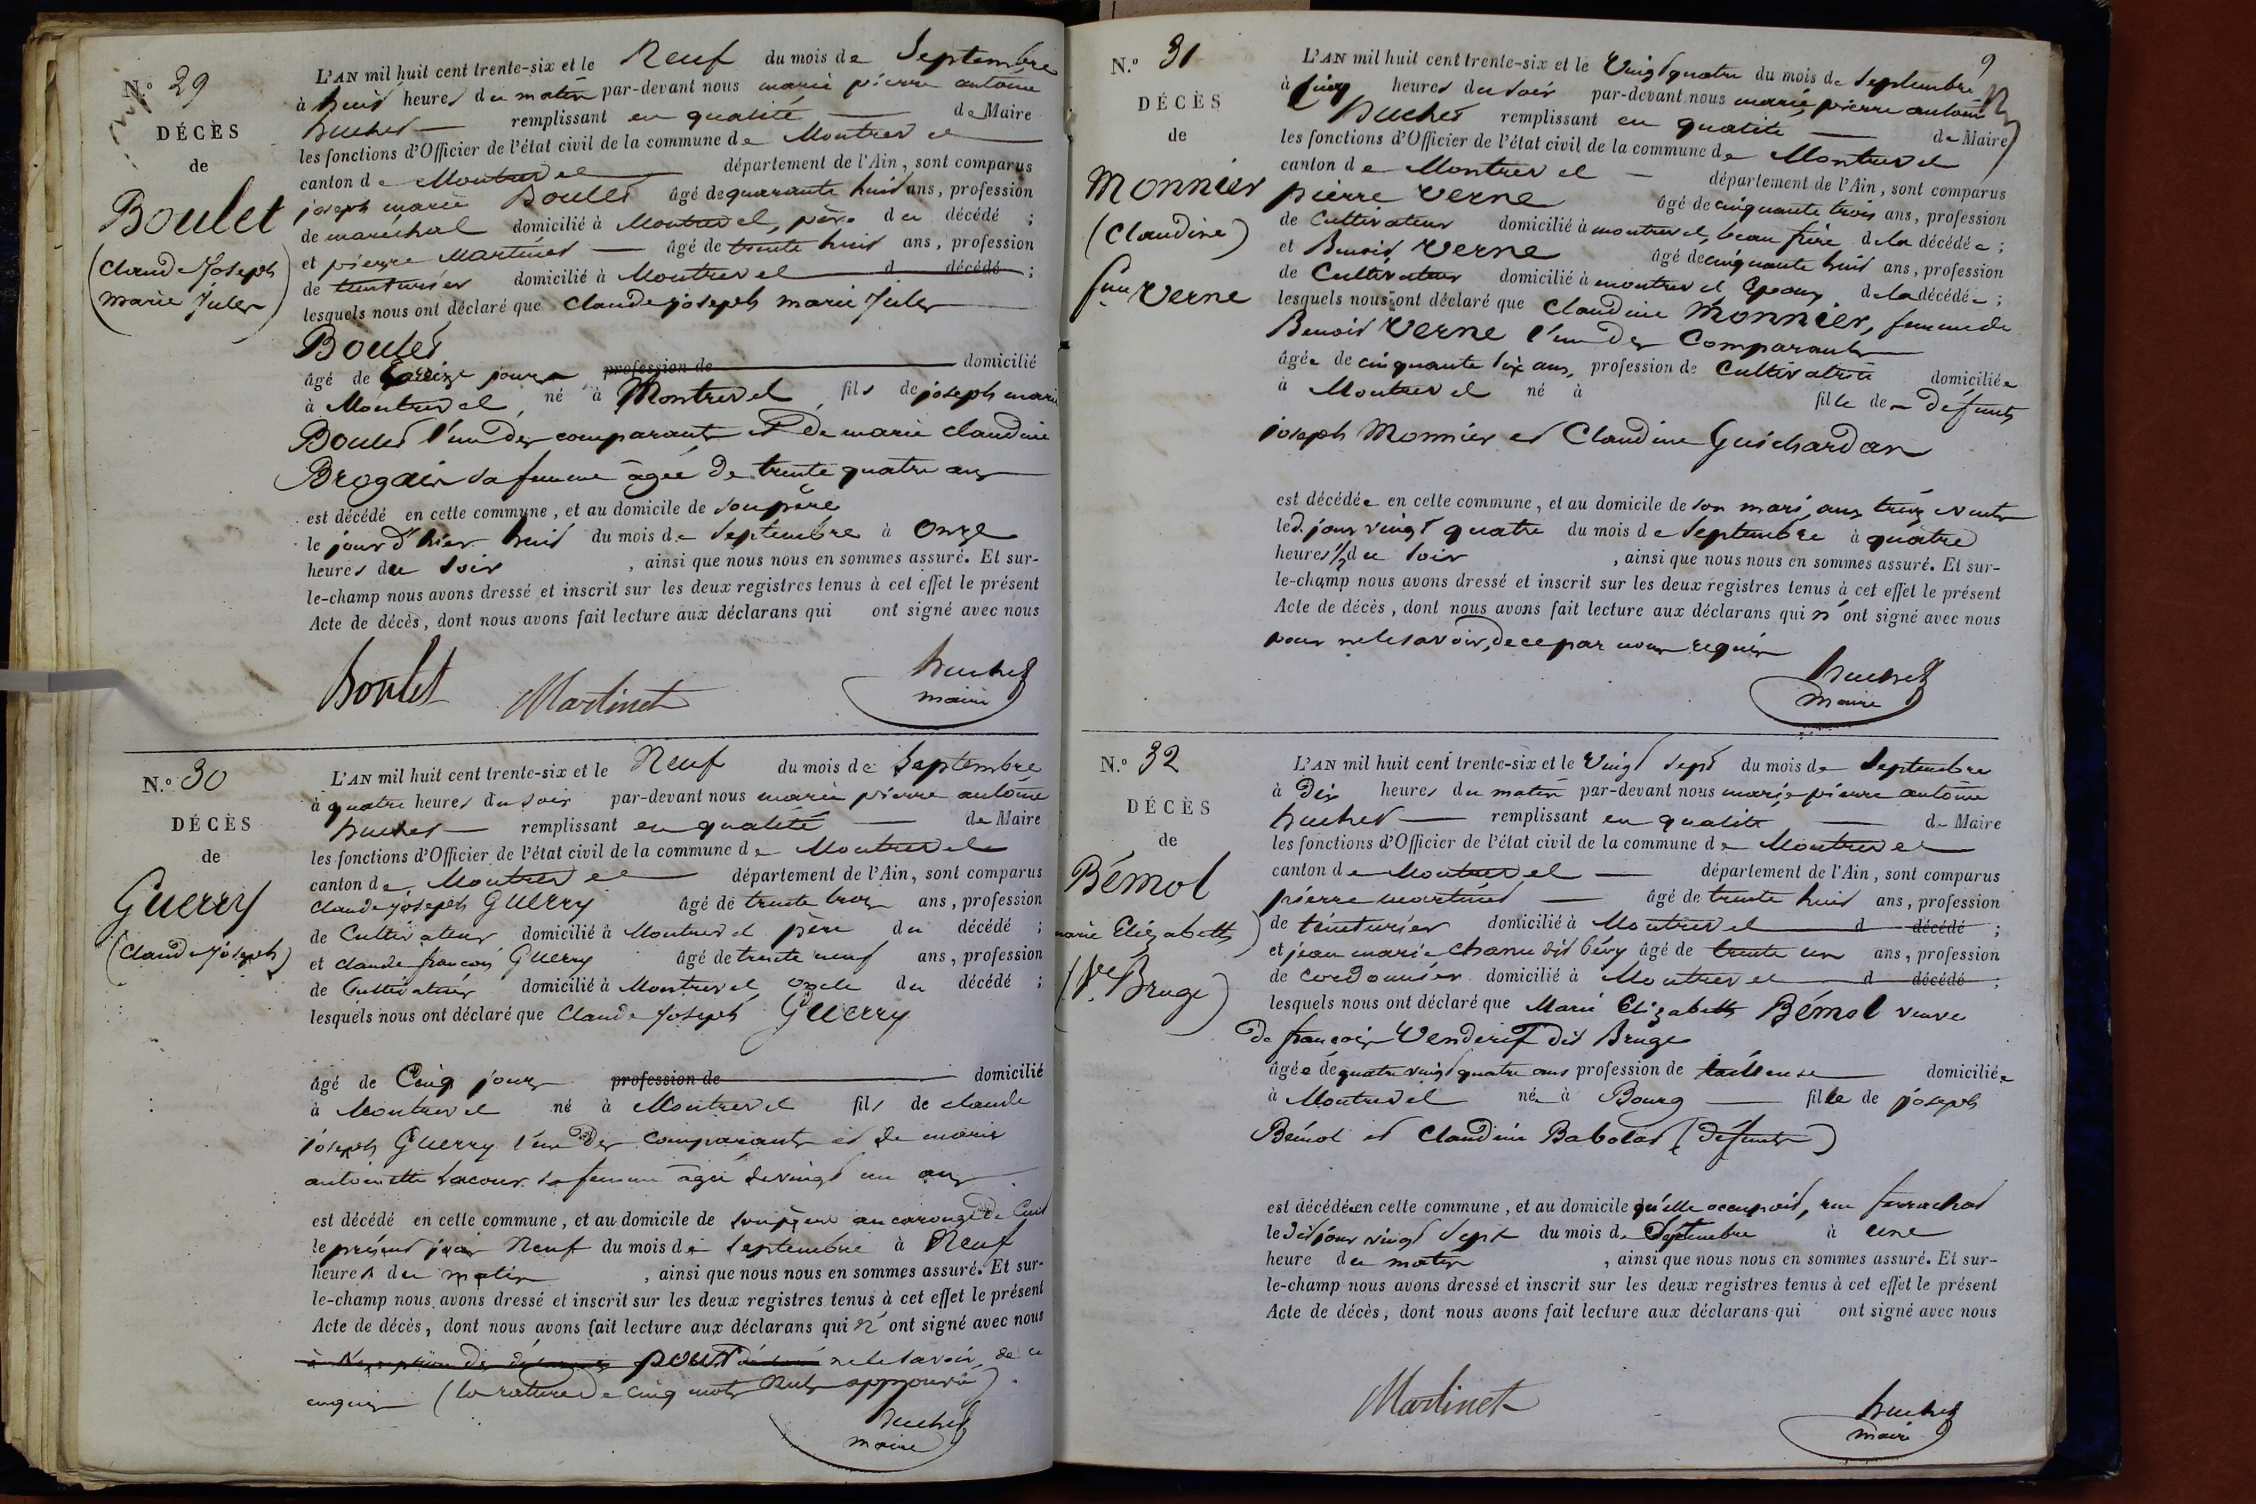 N.º 29
DÉCÈS
de
Boulet
(Claude Joseph
marie Jules)
L'AN mil huit cent trente-six et le Neuf du mois de Septembre
à huit heures du matin par-devant nous marie pierre antoine
huchet remplissant en qualité de Maire
les fonctions d'Officier de l'état civil de la commune de Montrevel
canton de Montrevel département de l'Ain, sont comparus
joseph marie Boulet âgé de quarante huit ans, profession
de maréchal domicilié à Montrevel, père du décédé ;
et pierre Martinet âgé de trente huit ans, profession
de teinturier domicilié à Montrevel d décédé ;
lesquels nous ont déclaré que Claude joseph marie Jules
Boulet
âgé de jours profession de domicilié
à Montrevel, né à Montrevel, fils de joseph marie
Boulet l'un des comparants et de marie Claudine
Brogain sa femme âgée de trente quatre ans
est décédé en cette commune, et au domicile de son père
le jour d'hier huit du mois de Septembre à Onze
heures du soir, ainsi que nous nous en sommes assuré. Et sur-
le-champ nous avons dressé et inscrit sur les deux registres tenus à cet effet le présent
Acte de décès, dont nous avons fait lecture aux déclarans qui ont signé avec nous
Boulet Martinet huchet
maire
N.º 30
DÉCÈS
de
Guerry
(Claude Joseph)
L'AN mil huit cent trente-six et le Neuf du mois de Septembre
à quatre heures du soir par-devant nous marie pierre antoine
huchet remplissant en qualité de Maire
les fonctions d'Officier de l'état civil de la commune de Montrevel
canton de Montrevel département de l'Ain, sont comparus
Claude joseph Guerry âgé de trente trois ans, profession
de Cultivateur domicilié à Montrevel père du décédé ;
et claude françois Guerry âgé de trente neuf ans, profession
de Cultivateur domicilié à Montrevel, oncle du décédé ;
lesquels nous ont déclaré que Claude Joseph Guerry
âgé de Cinq jours profession de domicilié
à Montrevel né à Montrevel fils de claude
joseph Guerry l'un des comparants et de marie
antoinette Lacour sa femme âgée de vingt un ans
est décédé en cette commune, et au domicile de son père au carouge de Cuet
le présent jour Neuf du mois de Septembre à Neuf
heures du matin, ainsi que nous nous en sommes assuré. Et sur-
le-champ nous avons dressé et inscrit sur les deux registres tenus à cet effet le présent
Acte de décès, dont nous avons fait lecture aux déclarans qui n'ont signé avec nous
pour ne le savoir, de ce
enquis (la rature de cinq mots nuls approuvée).
huchet
maire
9
N.º 31
DÉCÈS
de
Monnier
(Claudine)
fme Verne
L'AN mil huit cent trente-six et le Vingt quatre du mois de Septembre
à Cinq heures du soir par-devant nous marie pierre antoine
huchet remplissant en qualité de Maire
les fonctions d'Officier de l'état civil de la commune de Montrevel
canton de Montrevel département de l'Ain, sont comparus
pierre Verne âgé de cinquante trois ans, profession
de Cultivateur domicilié à montrevel, beau frère de la décédée ;
et Benoit Verne âgé de cinquante huit ans, profession
de Cultivateur domicilié à montrevel Epoux de la décédée ;
lesquels nous ont déclaré que Claudine Monnier, femme de
Benoit Verne l'un des Comparants
âgée de cinquante six ans, profession de Cultivatrice domiciliée
à Montrevel né à fille de défunts
joseph Monnier et Claudine Guichardan
est décédée en cette commune, et au domicile de son mari, aux treize vents
led. jour vingt quatre du mois de Septembre à quatre
heures 1/2 du soir, ainsi que nous nous en sommes assuré. Et sur-
le-champ nous avons dressé et inscrit sur les deux registres tenus à cet effet le présent
Acte de décès, dont nous avons fait lecture aux déclarans qui n'ont signé avec nous
pour ne le savoir, de ce par nous requis
huchet
maire
N.º 32
DÉCÈS
de
Bémol
marie Elizabeth)
(Ve Bruge)
L'AN mil huit cent trente-six et le Vingt Sept du mois de Septembre
à Dix heures du matin par-devant nous marie pierre antoine
huchet remplissant en qualité de Maire
les fonctions d'Officier de l'état civil de la commune de Montrevel
canton de Montrevel département de l'Ain, sont comparus
pierre martinet âgé de trente huit ans, profession
de teinturier domicilié à Montrevel d décédé ;
et jean marie Chanu dit bévy âgé de trente un ans, profession
de cordonnier domicilié à Montrevel d décédé ;
lesquels nous ont déclaré que Marie Elizabeth Bémol veuve
de françois Venderif dit Bruge
âgée de quatre vingt quatre ans profession de tailleuse domiciliée
à Montrevel née à Bourg fille de joseph
Bémol et Claudine Babolat (défunts)
est décédée en cette commune, et au domicile qu'elle occupoit, rue ferrachat
le dit jour vingt Sept du mois de Septembre à une
heure du matin, ainsi que nous nous en sommes assuré. Et sur-
le-champ nous avons dressé et inscrit sur les deux registres tenus à cet effet le présent
Acte de décès, dont nous avons fait lecture aux déclarans qui ont signé avec nous
Martinet huchet
maire